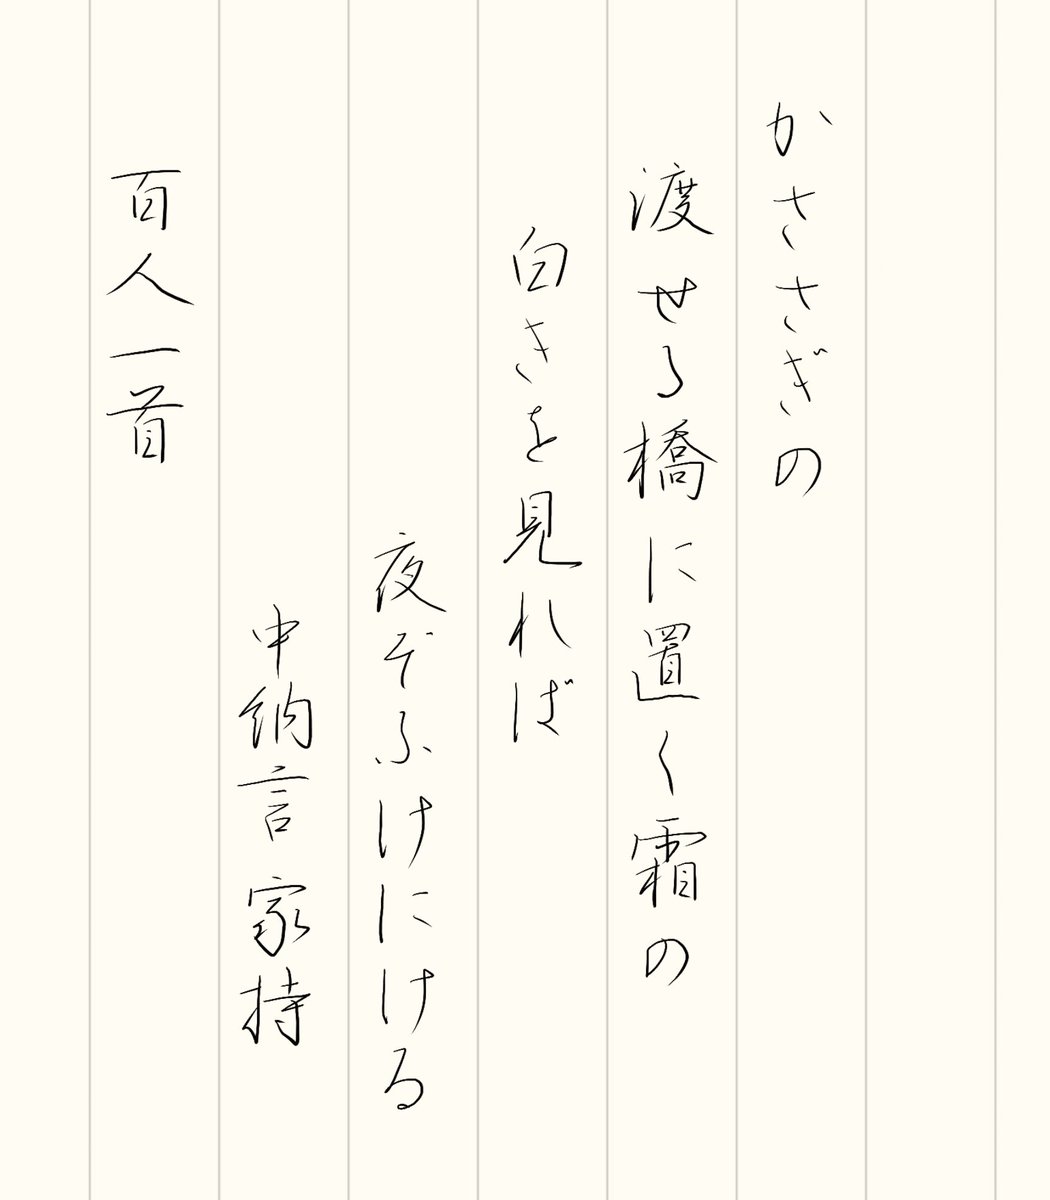 かささぎの
渡せる橋に置く霜の
白きを見れば
夜ぞふけにける
中納言家持
百人一首